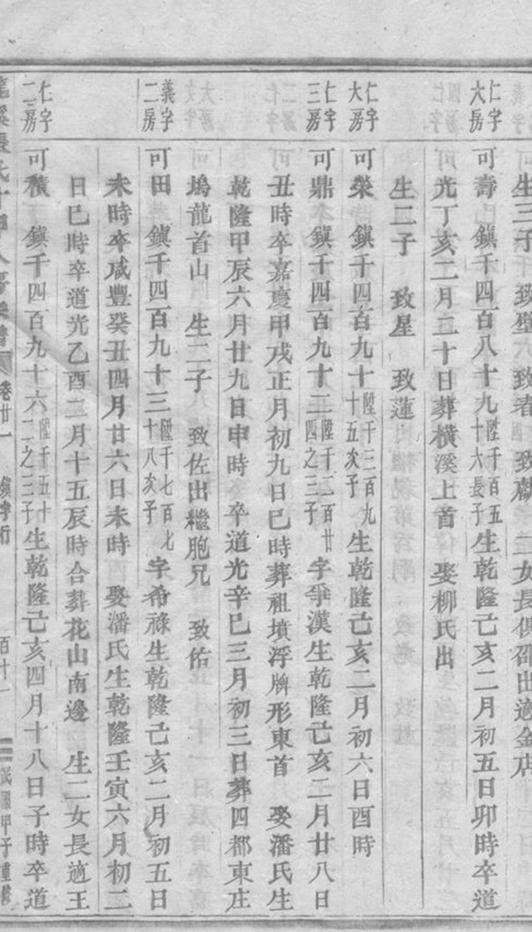 生三子 致 致 致 二女長俱 出適金店
仁字六房
可壽 鎮千四百八十九 陞千一百五十六長子 生乾隆己亥二月初五日卯時卒道
光丁亥二月二十日葬橫溪上首 娶柳氏出
生二子 致星 致蓮
仁字大房
可榮 鎮千四百九十 陞千二百九十五次子 生乾隆己亥二月初六日酉時
仁字三房
可鼎 鎮千四百九十二 陞千二百廿四之三子 字爭漢生乾隆己亥三月廿八日
丑時卒嘉慶甲戌正月初九日巳時葬祖墳浮牌形東首 娶潘氏生
乾隆甲辰六月廿九日申時 卒道光辛巳三月初三日葬四都東庄
塢龍首山 生二子 致佐出繼胞兄 致佑
義字二房
可田 鎮千四百九十三 陞千七百七十八次子 字希祿生乾隆己亥二月初五日
未時卒咸豐癸丑四月廿六日未時 娶潘氏生乾隆壬寅六月初二
日巳時卒道光乙酉二月十五辰時合葬花山南邊 生二女長適王
仁字二房
可積 鎮千四百九十六 陞千五十二之三子 生乾隆己亥四月十八日子時卒道
張氏 卷廿一 鎮字行 百廿一 民國甲子重修